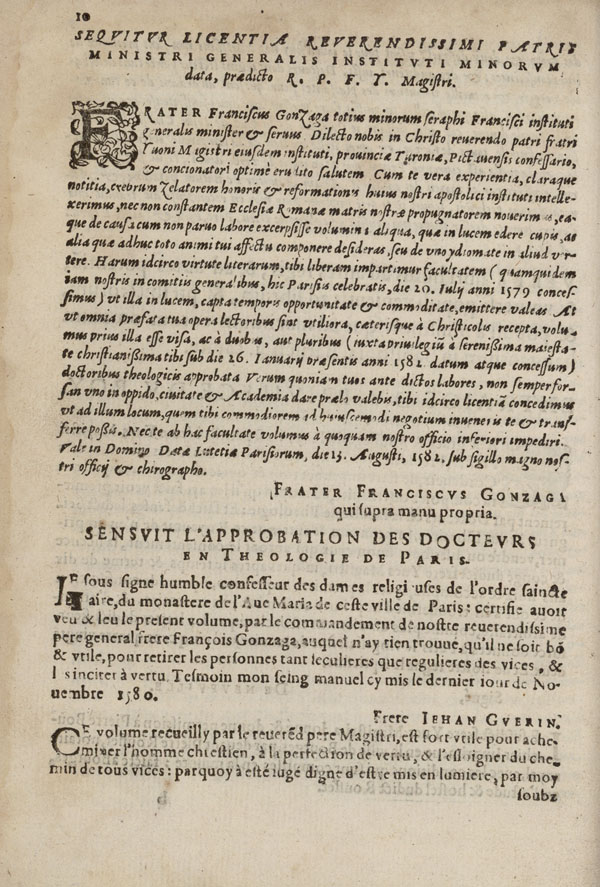 10
SEQVITVR LICENTIA REVERENDISSIMI PATRIS
MINISTRI GENERALIS INSTITVTI MINORVM
data, prædicto R. P. F. Y. Magistri.
FRATER Franciscus GonZaga totius minorum seraphi Francisci instituti
generalis minister & seruus Dilecto nobis in Christo reuerendo patri fratri
Yuoni Magistri eiusdem instituti, prouinciæ Turoniæ, Pictauensis confessario,
& concionatori optimè erudito salutem Cum te vera experientia, claraque
notitia, crebrum Zelatorem honoris & reformationis huius nostri apostolici instituti intelle-
xerimus, nec non constantem Ecclesiæ Romanæ matris nostræ propugnatorem nouerimus, ea-
que de causa cum non paruo labore excerpsisse volumina aliqua, quæ in lucem edere cupis, ac
alia quæ adhuc toto animi tui affectu componere desideras, seu de vno ydiomate in aliud ver-
tere. Harum idcirco virtute literarum, tibi liberam impartimur facultatem ( quamquidem
iam nostris in comitiis generalibus, hic Parisiis celebratis, die 20. Iulij anni 1579 conces-
simus ) vt illa in lucem, capta temporis opportunitate & commoditate, emittere valeas At
vt omnia præfata tua opera lectoribus sint vtiliora, cæterisque à Christicolis recepta, volu-
mus prius illa esse visa, ac à duobus, aut pluribus ( iuxta priuilegiũ à serenissima maiesta-
te christianissima tibi sub die 26. Ianuarij præsentis anni 1582. datum atque concessum )
doctoribus theologicis approbata Verum quoniam tuos ante dictos labores, non semper for-
san vno in oppido, ciuitate & Academia dare prælo valebis, tibi idcirco licentiã concedimus
vt ad illum locum, quem tibi commodiorem ad huiuscemodi negotium inueneris te & trans-
ferre possis. Nec te ab hac facultate volumus à quoquam nostro officio inferiori impediri.
Vale in Domino Datæ Lutetiæ Parisiorum, die 13. Augusti, 1582. sub sigillo magno nos-
tri officij & chirographo.
FRATER FRANCISCVS GONZAGA
qui supra manu propria.
SENSVIT L'APPROBATION DES DOCTEVRS
EN THEOLOGIE DE PARIS.
IE sous signe humble confesseur des dames religieuses de l'ordre saincte
Claire, du monastere de l'Aue Maria de ceste ville de Paris: certifie auoir
veu & leu le present volume, par le commandement de nostre reuerendissime
pere general frere François Gonzaga, auquel n'ay rien trouué, qu'il ne soit bõ
& vtile, pour retirer les personnes tant seculieres que regulieres des vices, &
les inciter à vertu. Tesmoin mon seing manuel cy mis le dernier iour de No-
uembre 1580.
Frere IEHAN GVERIN.
CE volume recueilly par le reuerẽd pere Magistri, est fort vtile pour ache-
miner l'homme chrestien, à la perfection de vertu, & l'esloigner du che-
min de tous vices: parquoy à esté iugé digne d'estre mis en lumiere, par moy
soubz